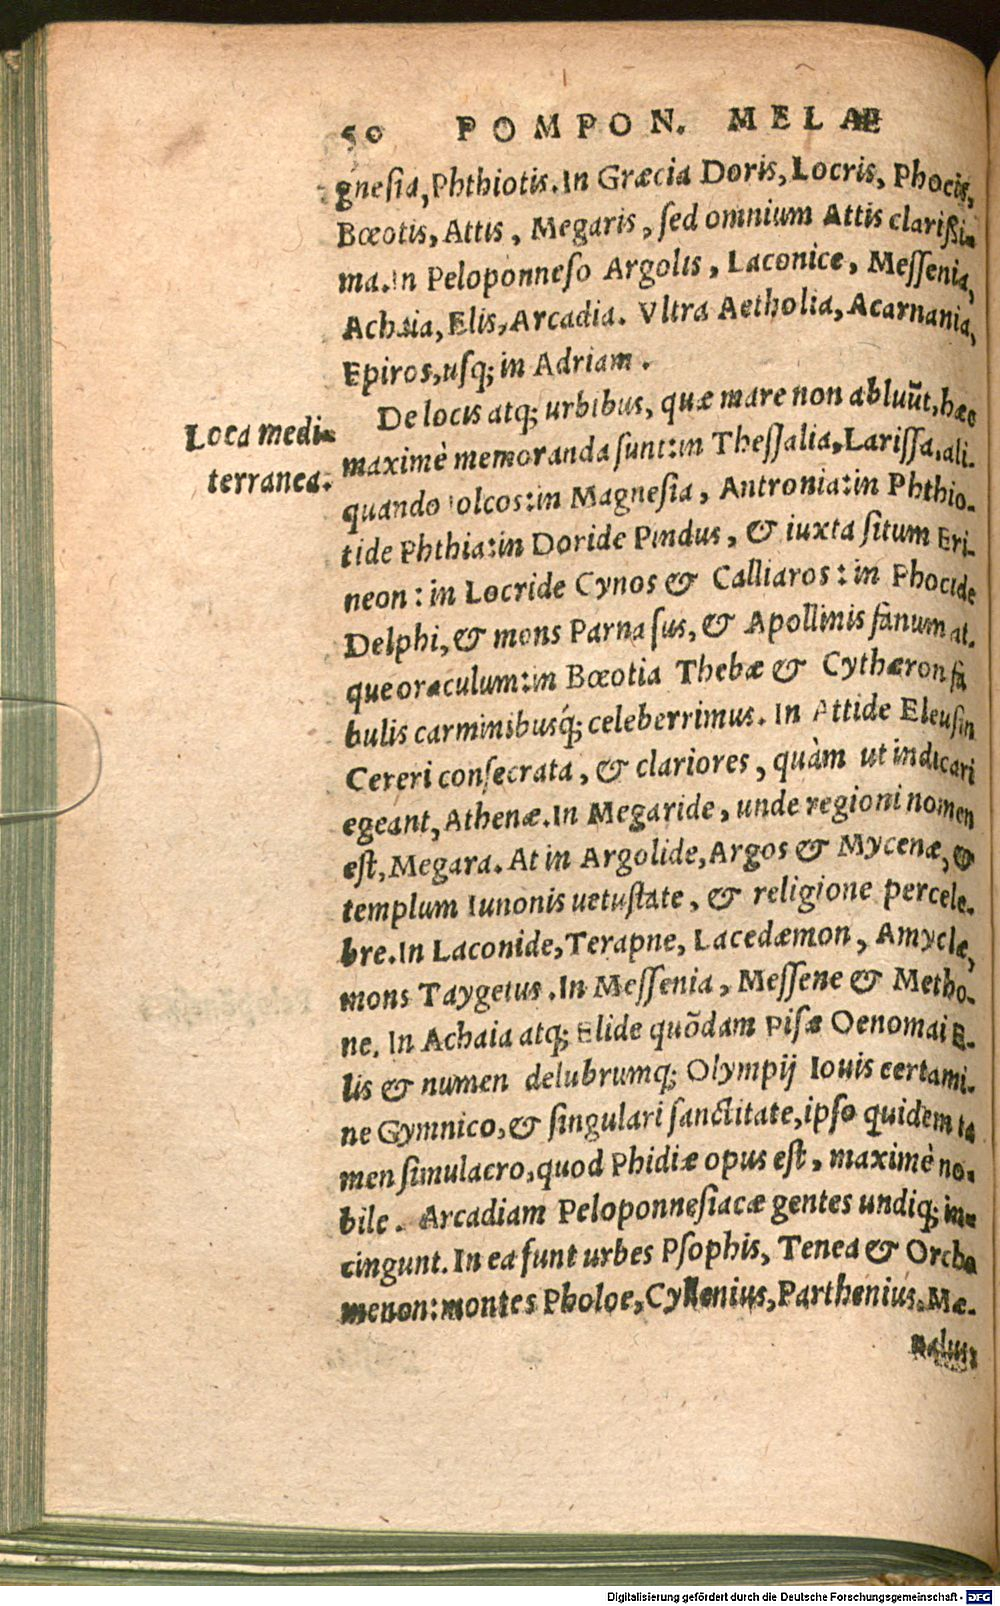 50 POMPON. MELAE
gneſia, Phthiotis. In Græcia Doris, Locris, Phocis,
Bœotis, Attis, Megaris, ſed omnium Attis clarißi-
ma. In Peloponneſo Argolis, Laconice, Meſſenia,
Achaia, Elis, Arcadia. Vltra Aetholia, Acarnania,
Epiros, uſq; in Adriam.
De locis atq; urbibus, quæ mare non abluūt, hæc
Loca medi-
terranea.
maximè memoranda ſunt: in Theſſalia, Lariſſa, ali-
quando Iolcos: in Magneſia, Antronia: in Phthio-
tide Phthia: in Doride Pindus, & iuxta ſitum Eri-
neon: in Locride Cynos & Calliaros: in Phocide
Delphi, & mons Parnaſus, & Apollinis fanum at-
que oraculum: in Bœotia Thebæ & Cythæron fa
bulis carminibusq́; celeberrimus. In Attide Eleuſin
Cereri conſecrata, & clariores, quàm ut indicari
egeant, Athenæ. In Megaride, unde regioni nomen
eſt, Megara. At in Argolide, Argos & Mycenæ, &
templum Iunonis uetuſtate, & religione percele-
bre. In Laconide, Terapne, Lacedæmon, Amyclæ,
mons Taygetus. In Meſſenia, Meſſene & Metho-
ne. In Achaia atq; Elide quōdam Piſæ Oenomai E-
lis & numen delubrumq; Olympij Iouis certami-
ne Gymnico, & ſingulari ſanctitate, ipſo quidem ta
men ſimulacro, quod Phidiæ opus eſt, maximè no-
bile. Arcadiam Peloponneſiacæ gentes undiq; in-
cingunt. In ea ſunt urbes Pſophis, Tenea & Orcho
menon: montes Pholoe, Cyllenius, Parthenius, Mæ-
nalus:
Digitalisierung gefördert durch die Deutsche Forschungsgemeinschaft - DFG